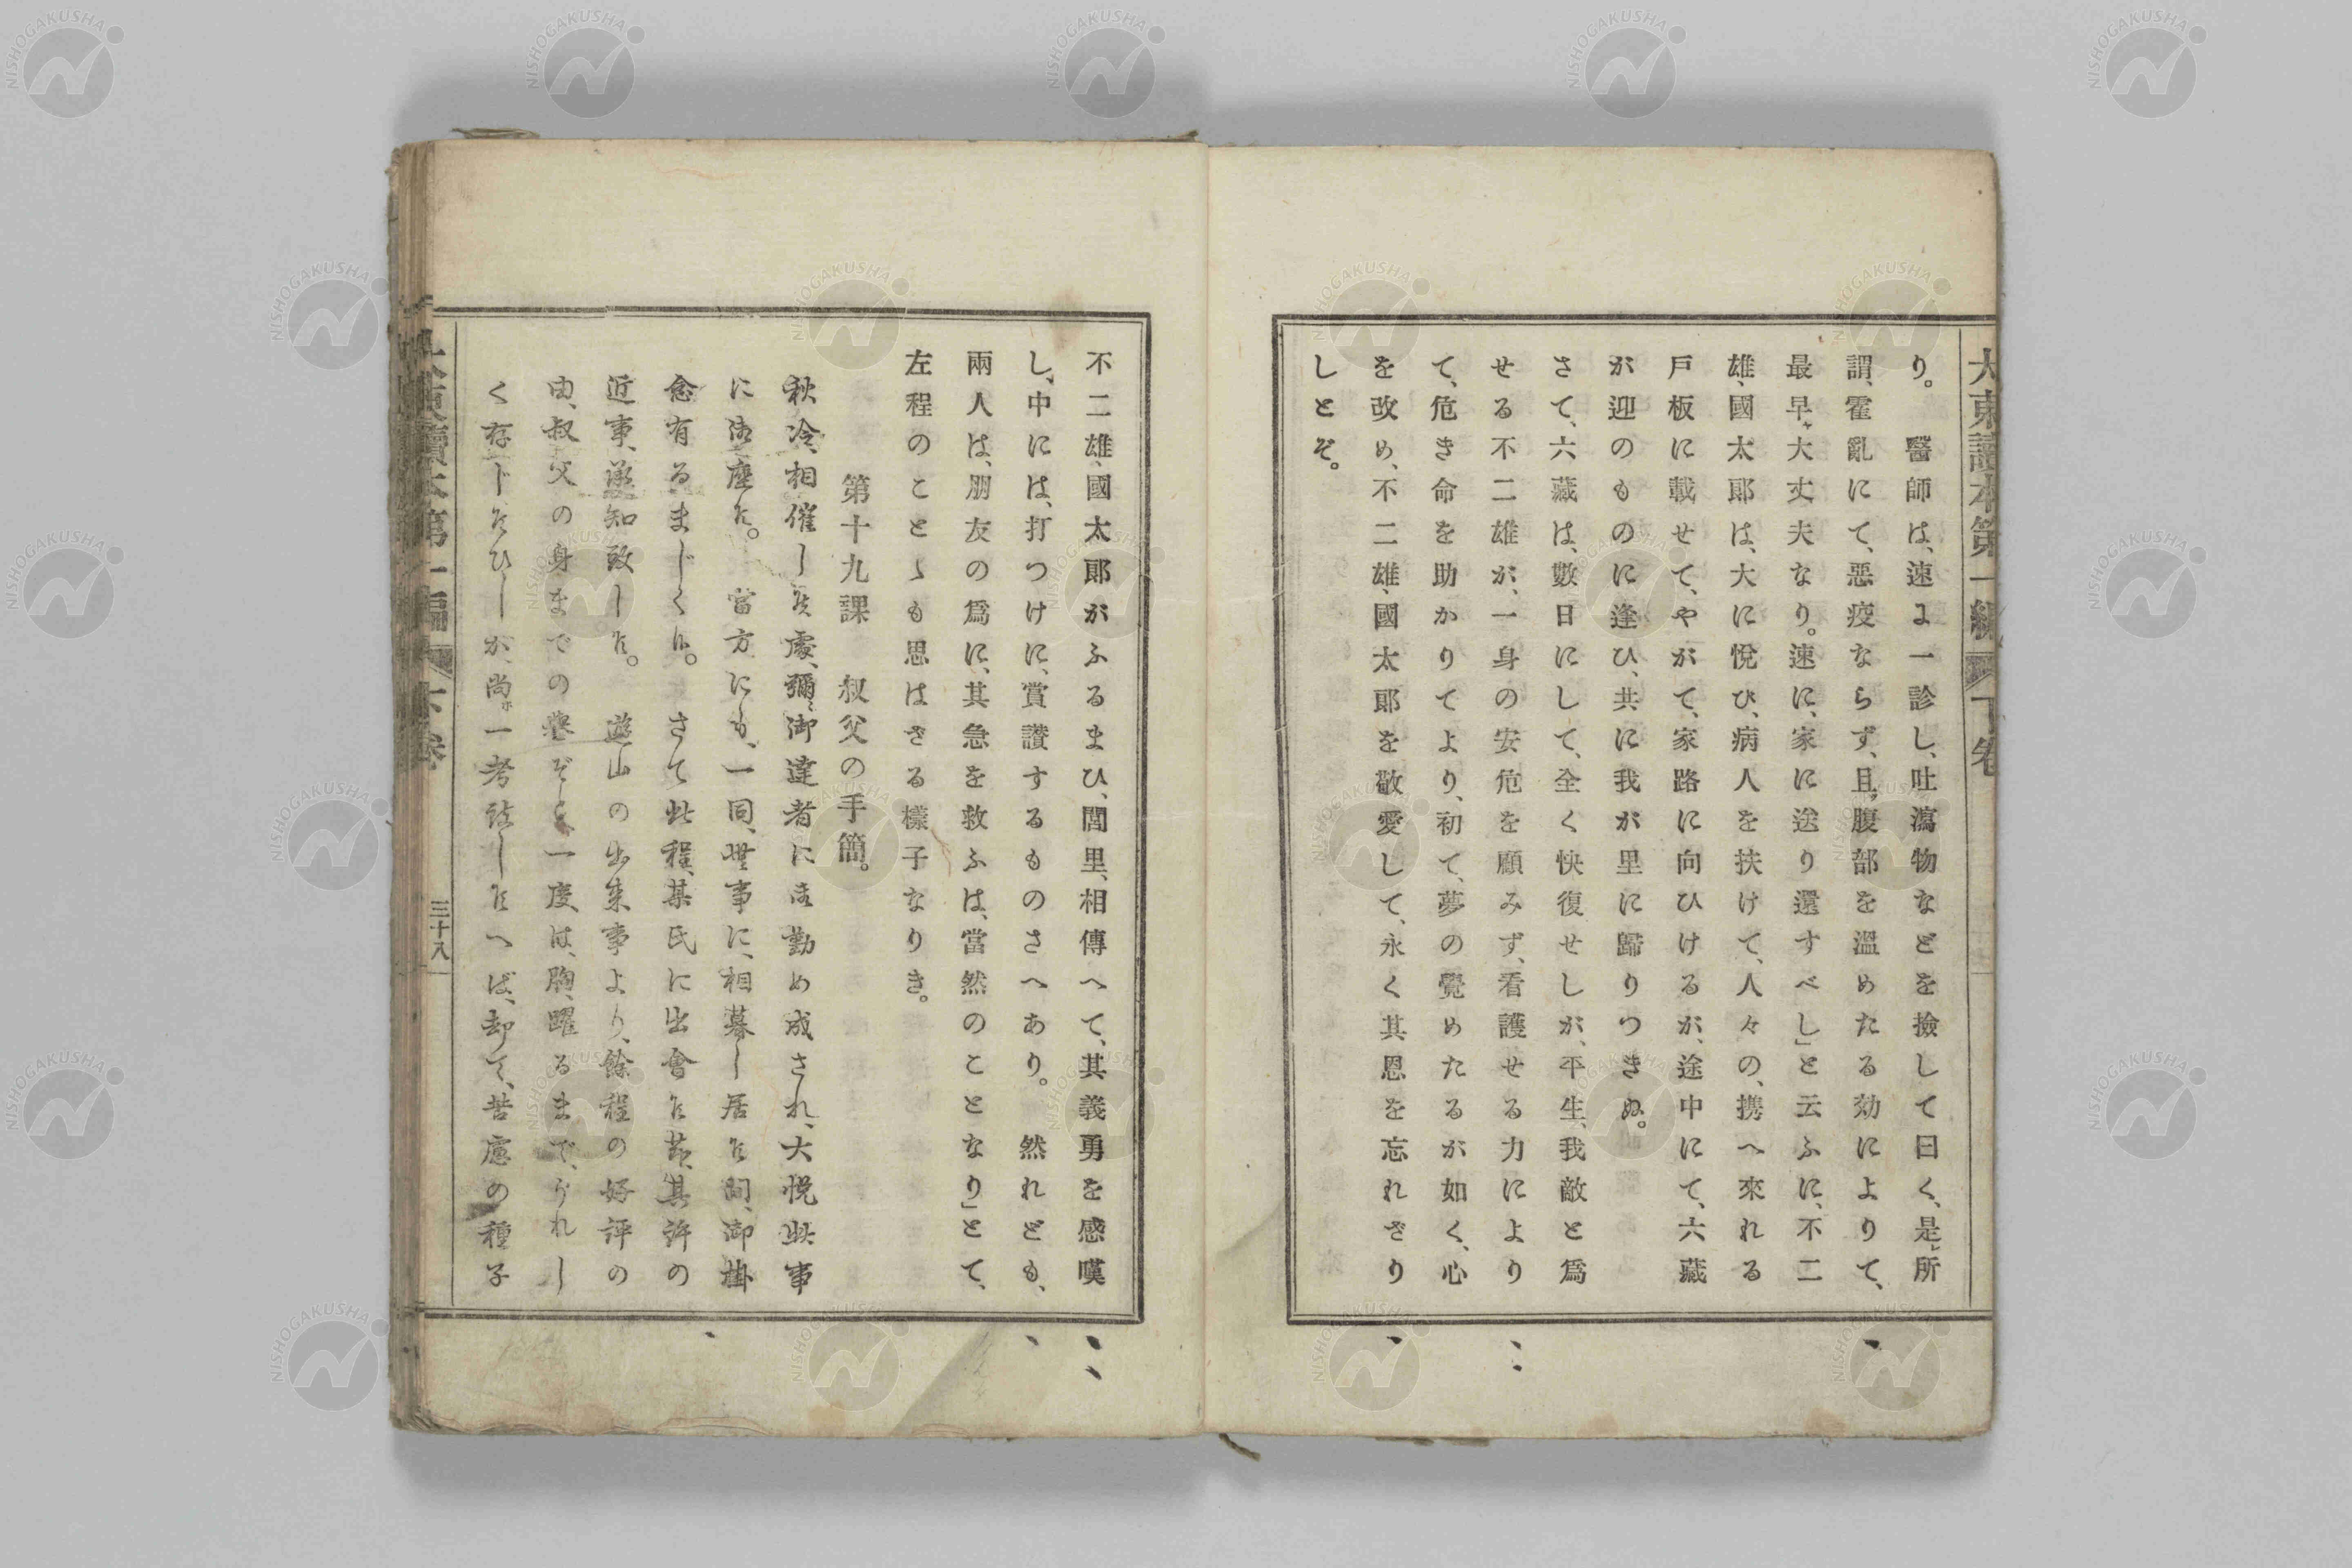 り。　醫師は、速に一診し、吐瀉物などを撿して曰く、是レ所
謂、霍亂にて、惡疫ならず、且ツ腹部を溫めたる効によりて、
最早、大丈夫なり。速に、家に送り還すべし」と云ふに、不二
雄、國太郎は、大に悅び、病人を扶けて、人々の、携へ來れる
戸板に載せて、やがて、家路に向ひけるが、途中にて、六藏
が迎のものに逢ひ、共に我が里に歸りつきぬ。
さて、六藏は、數日にして、全く快復せしが、平生、我敵と爲
せる不二雄が、一身の安危を顧みず、看護せる力により
て、危き命を助かりてより、初て、夢の覺めたるが如く、心
を改め、不二雄、國太郎を敬愛して、永く其恩を忘れざり
しとぞ。
不二雄、國太郎がふるまひ、閭里、相傳へて、其義勇を感嘆
し、中には、打つけに、賞讃するものさへあり。　然れども、
兩人は、朋友の爲に、其急を救ふは、當然のことなり」とて、
左程のことゝも思はざる樣子なりき。
第十九課　叔父の手簡。
秋冷、相催し候處、彌、御達者にほ勤め成され、大悅此事
に御座候。　當方にも、一同、無事に、相暮し居候間、御掛
念有るまじく候。　さて此程、某氏に出會候節、其許の
近事、承知致し候。　遊山の出來事より、餘程の好評の
由、叔父の身までの譽ぞと、一度は、胸、躍るまで、うれし
く存じ候ひしが、尚ホ一考致し候へば、却て、苦慮の種子
三十八
大東讀本第一編　下卷